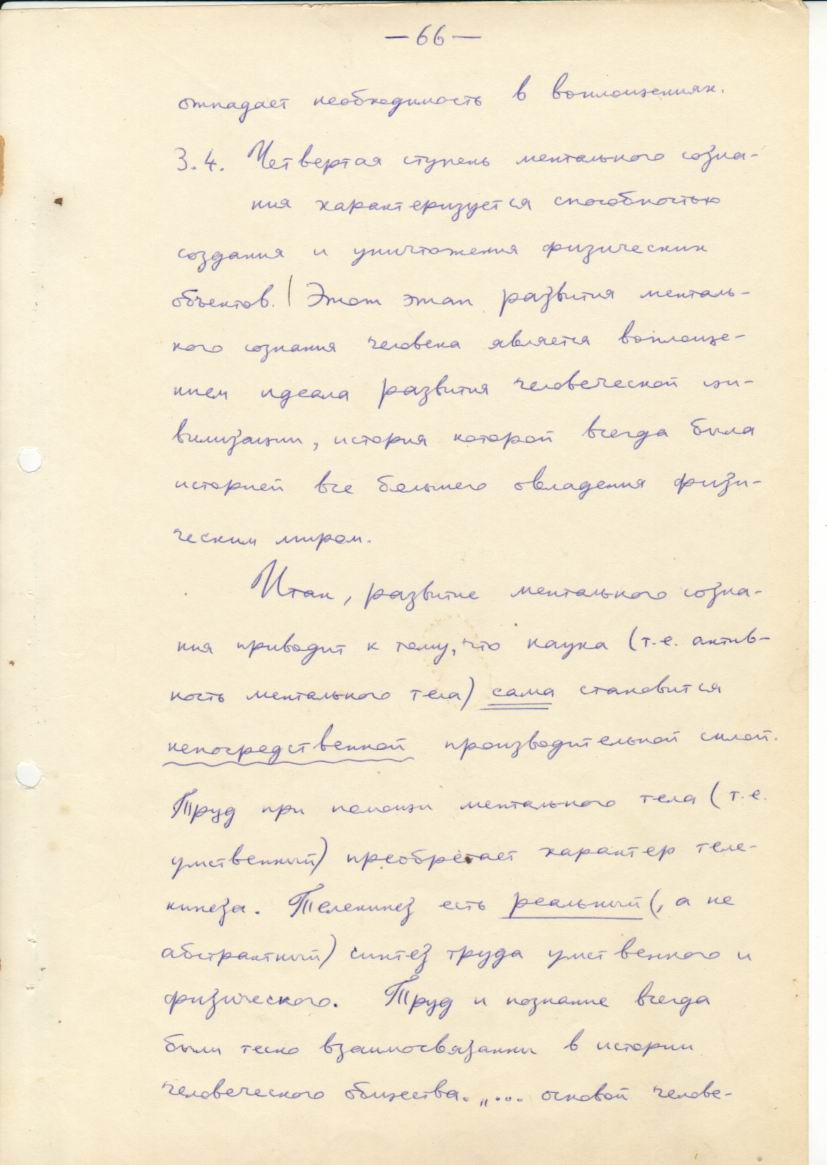 —66—
отпадает необходимость в воплощениях.
3.4. Четвертая ступень ментального созна-
ния характеризуется способностью
создания и уничтожения физических
объектов. | Этот этап развития менталь-
ного сознания человека является воплоще-
нием идеала развития человеческой ци-
вилизации, история которой всегда была
историей все большего овладения физи-
ческим миром.
Итак, развитие ментального созна-
ния приводит к тому, что наука (т.е. актив-
ность ментального тела) сама становится
непосредственной производительной силой.
Труд при помощи ментального тела (т.е.
умственный) преобретает характер теле-
кинеза. Телекинез есть реальный (, а не
абстрактный) синтез труда умственного и
физического. Труд и познание всегда
были тесно взаимосвязанны в истории
человеческого общества. „... основой челове-